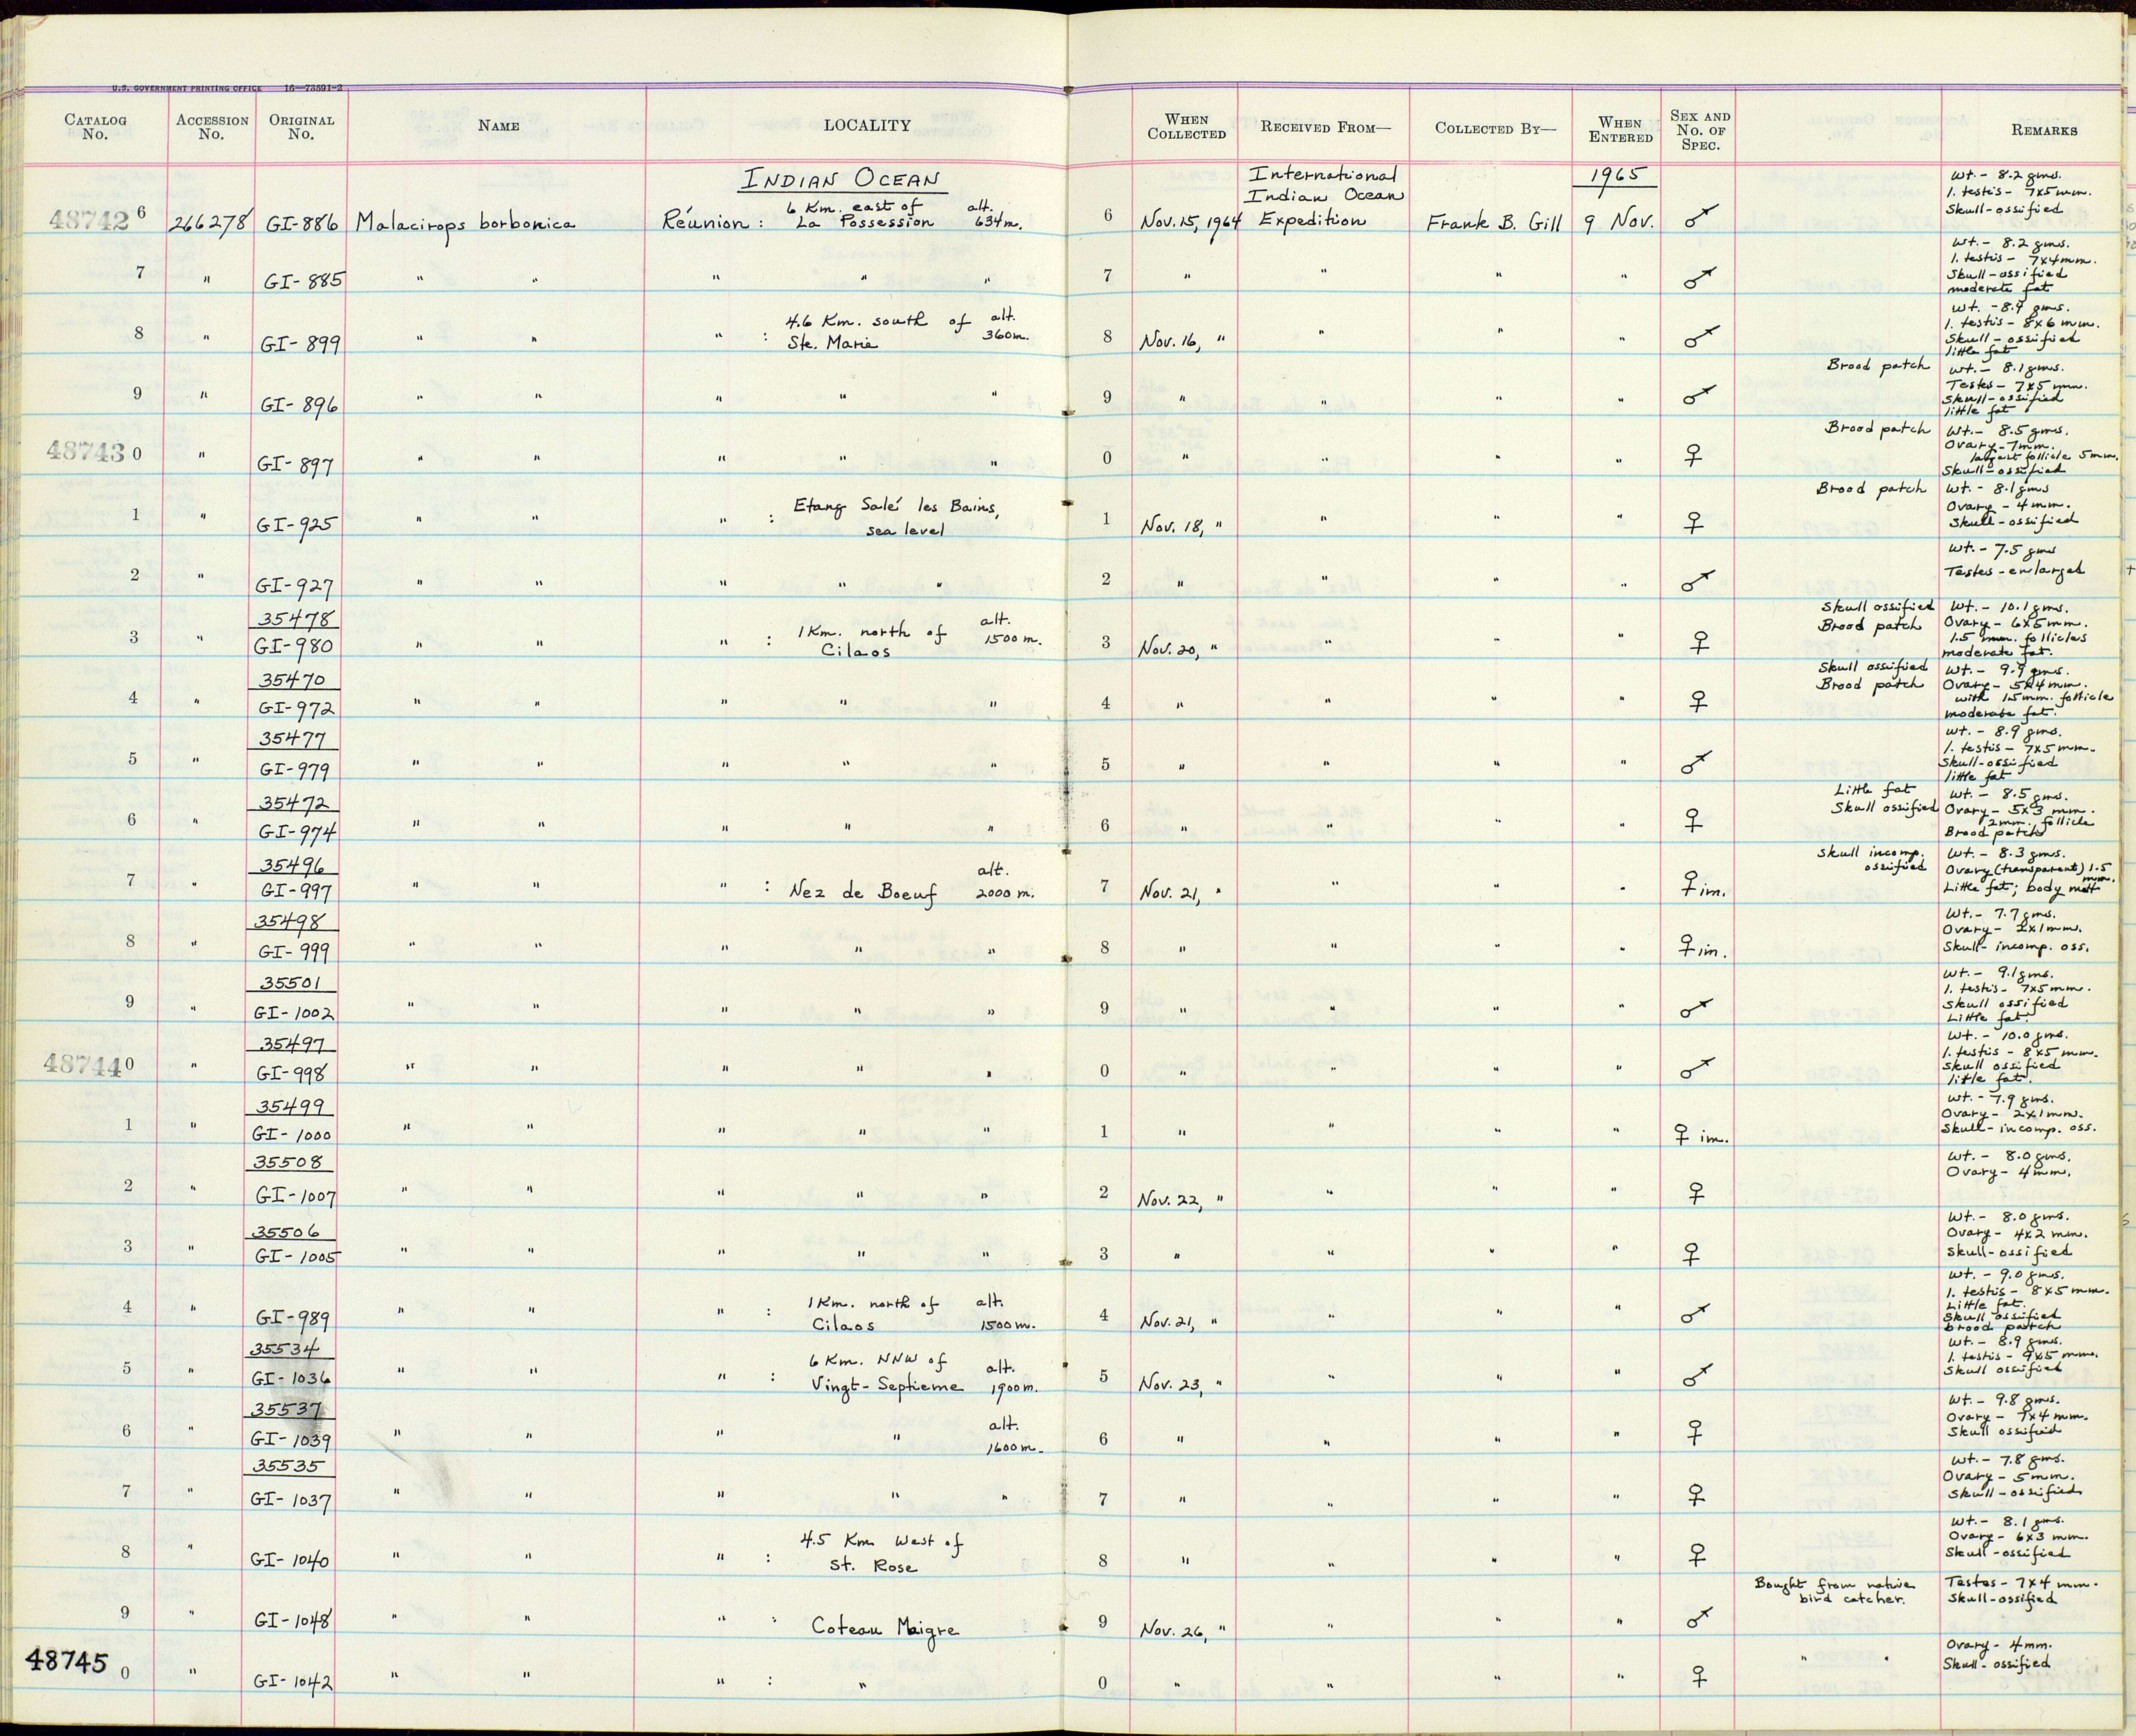 U.S. GOVERNMENT PRINTING OFFICE 16—73591-2
CATALOG No. ACCESSION No. ORIGINAL No. NAME LOCALITY WHEN COLLECTED RECEIVED FROM— COLLECTED BY— WHEN ENTERED SEX AND No. OF SPEC. REMARKS
INDIAN OCEAN International Indian Ocean 1965
48742 6 266278 GI-886 Malacirops borbonica Réunion : 6 Km. east of La Possession alt. 634m. 6 Nov. 15, 1964 Expedition Frank B. Gill 9 Nov. ♂ Wt. - 8.2 gms. l. testis - 7x5mm. Skull-ossified
7 " GI-885 " " " " " 7 " " " " ♂ Wt. - 8.2 gms. l. testis - 7x4mm. Skull-ossified moderate fat
8 " GI-899 " " " : 4.6 Km. south of Ste. Marie alt. 360m. 8 Nov. 16, " " " " ♂ Wt. - 8.9 gms. l. testis - 8x6 mm. Skull-ossified little fat
9 " GI-896 " " " " " 9 " " " " ♂ Brood patch Wt. - 8.1 gms. Testes - 7x5 mm. Skull-ossified little fat
48743 0 " GI-897 " " " " " 0 " " " " ♀ Brood patch Wt. - 8.5 gms. Ovary - 7mm. largest follicle 5mm. Skull-ossified
1 " GI-925 " " " : Etang Salé les Bains, sea level 1 Nov. 18, " " " " ♀ Brood patch Wt. - 8.1 gms Ovary - 4mm. Skull-ossified
2 " GI-927 " " " " " 2 " " " " ♂ Wt. - 7.5 gms Testes - enlarged
3 " 35478 GI-980 " " " : 1 Km. north of Cilaos alt. 1500 m. 3 Nov. 20, " " " " ♀ Skull ossified Brood patch Wt. - 10.1 gms. Ovary - 6x5mm. 1.5 mm. follicles moderate fat.
4 " 35470 GI-972 " " " " " 4 " " " " ♀ Skull ossified Brood patch Wt. - 9.9 gms. Ovary - 5x4mm. with 1.5mm. follicle moderate fat.
5 " 35477 GI-979 " " " " " 5 " " " " ♂ Wt. - 8.9 gms. l. testis - 7x5mm. Skull-ossified little fat
6 " 35472 GI-974 " " " " " 6 " " " " ♀ Little fat Skull ossified Wt. - 8.5 gms. Ovary - 5x3 mm. 2mm. follicle Brood patch
7 " 35496 GI-997 " " " : Nez de Boeuf alt. 2000 m. 7 Nov. 21, " " " " ♀ im. Skull incomp. ossified Wt. - 8.3 gms. Ovary (transparent) 1.5 mm. Little fat; body
8 " 35498 GI-999 " " " " " 8 " " " " ♀ im. Wt. - 7.7 gms. Ovary - 2x1mm. Skull- incomp. oss.
9 " 35501 GI-1002 " " " " " 9 " " " " ♂ Wt. - 9.1 gms. l. testis - 7x5mm. Skull ossified Little fat.
48744 0 " 35497 GI-998 " " " " " 0 " " " " ♂ Wt. - 10.0 gms. l. testis - 8x5 mm. Skull ossified little fat.
1 " 35499 GI-1000 " " " " " 1 " " " " ♀ im. Wt. - 7.9 gms. Ovary - 2x1mm. Skull-incomp. oss.
2 " 35508 GI-1007 " " " " " 2 Nov. 22, " " " " ♀ Wt. - 8.0 gms. Ovary - 4mm.
3 " 35506 GI-1005 " " " " " 3 " " " " ♀ Wt. - 8.0 gms. Ovary - 4x2 mm. Skull-ossified
4 " GI-989 " " " : 1 Km. north of Cilaos alt. 1500 m. 4 Nov. 21, " " " " ♂ Wt. - 9.0 gms. l. testis - 8x5 mm. Little fat. Skull ossified brood patch
5 " 35534 GI-1036 " " " : 6 Km. NNW of Vingt-Septieme alt. 1900m. 5 Nov. 23, " " " " ♂ Wt. - 8.9 gms. l. testis - 9x5 mm. Skull ossified
6 " 35537 GI-1039 " " " " alt. 1600m. 6 " " " " ♀ Wt. - 9.8 gms. Ovary - 7x4 mm. Skull ossified
7 " 35535 GI-1037 " " " " " 7 " " " " ♀ Wt. - 7.8 gms. Ovary - 5mm. Skull-ossified
8 " GI-1040 " " " : 4.5 Km. West of St. Rose 8 " " " " ♀ Wt. - 8.1 gms. Ovary - 6x3 mm. Skull-ossified
9 " GI-1048 " " " : Coteau Maigre 9 Nov. 26, " " " " ♂ Bought from native bird catcher. Testes - 7x4 mm. Skull-ossified
48745 0 " GI-1042 " " " : " 0 " " " " ♀ " " Ovary - 4mm. Skull-ossified